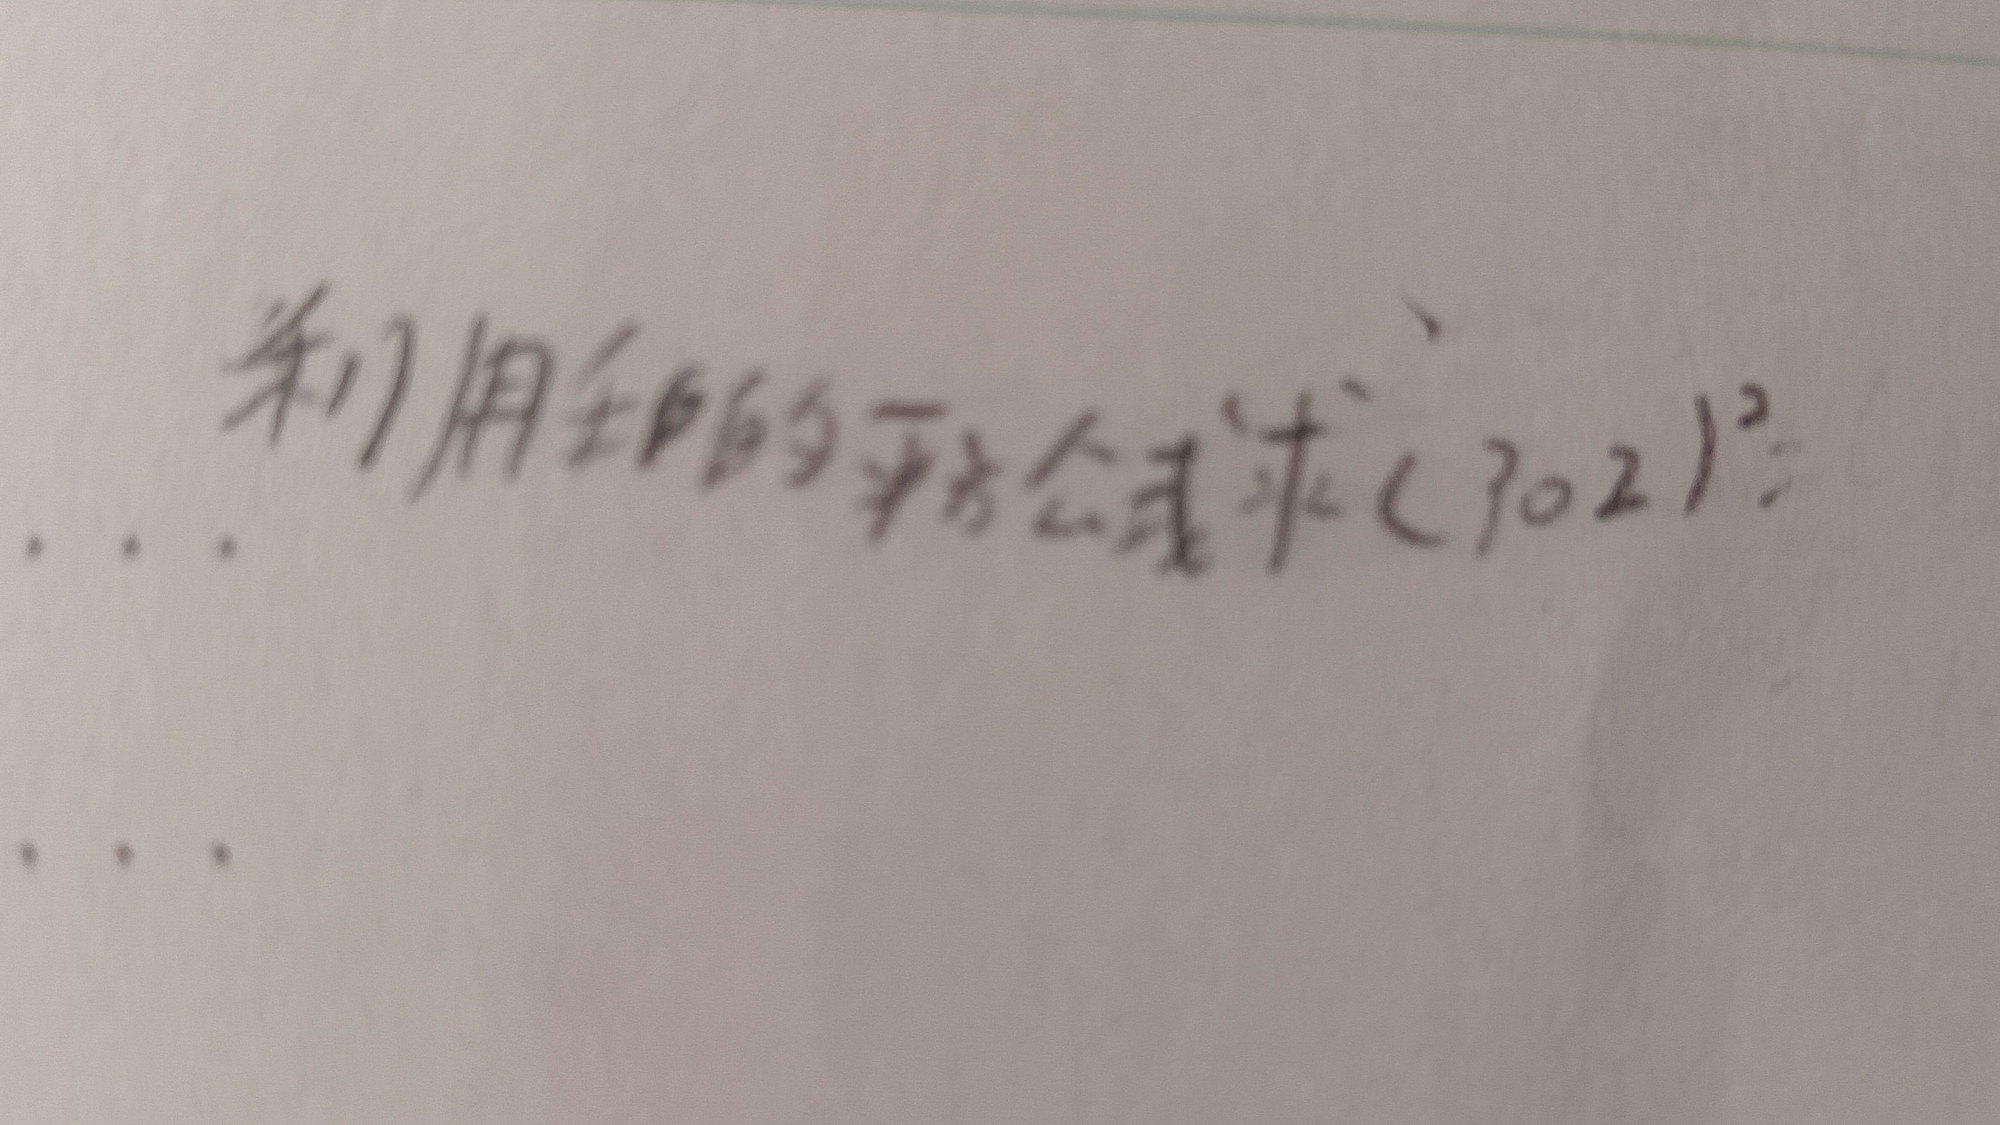 利用和的平方公式求(302)²: